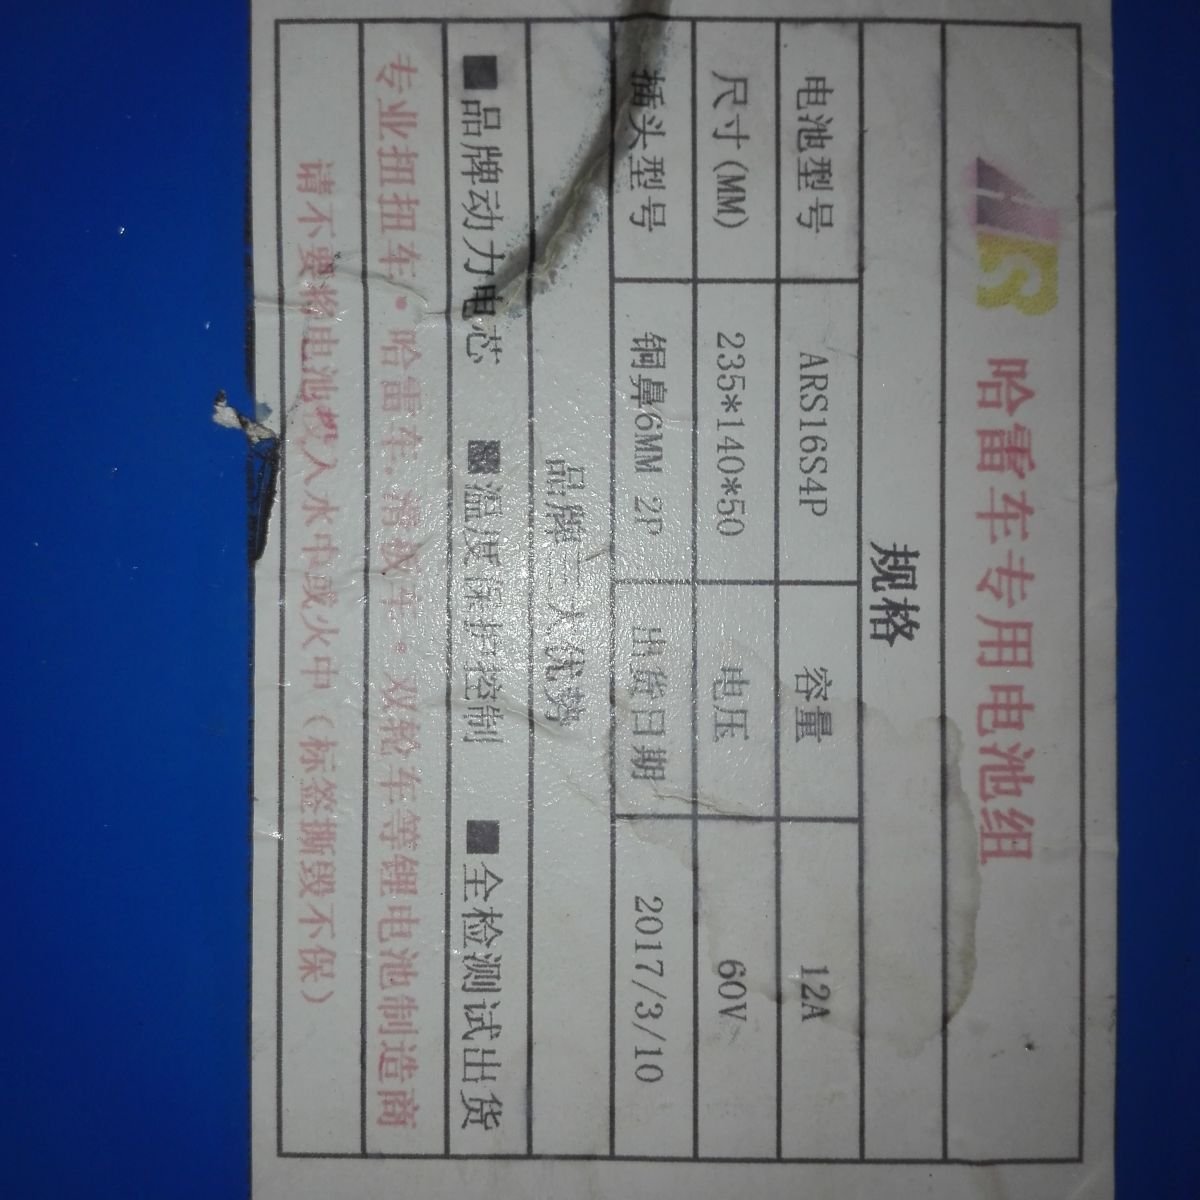 HS 哈雷车专用电池组
规格
电池型号 ARS16S4P 容量 12A
尺寸(MM) 235*140*50 电压 60V
插头型号 铜鼻6MM 2P 出货日期 2017/3/10
品牌三大优势
■品牌动力电芯 ■温度保护控制 ■全检测试出货
专业扭扭车·哈雷车.滑板车·双轮车等锂电池制造商
请不要将电池投入水中或火中（标签撕毁不保）